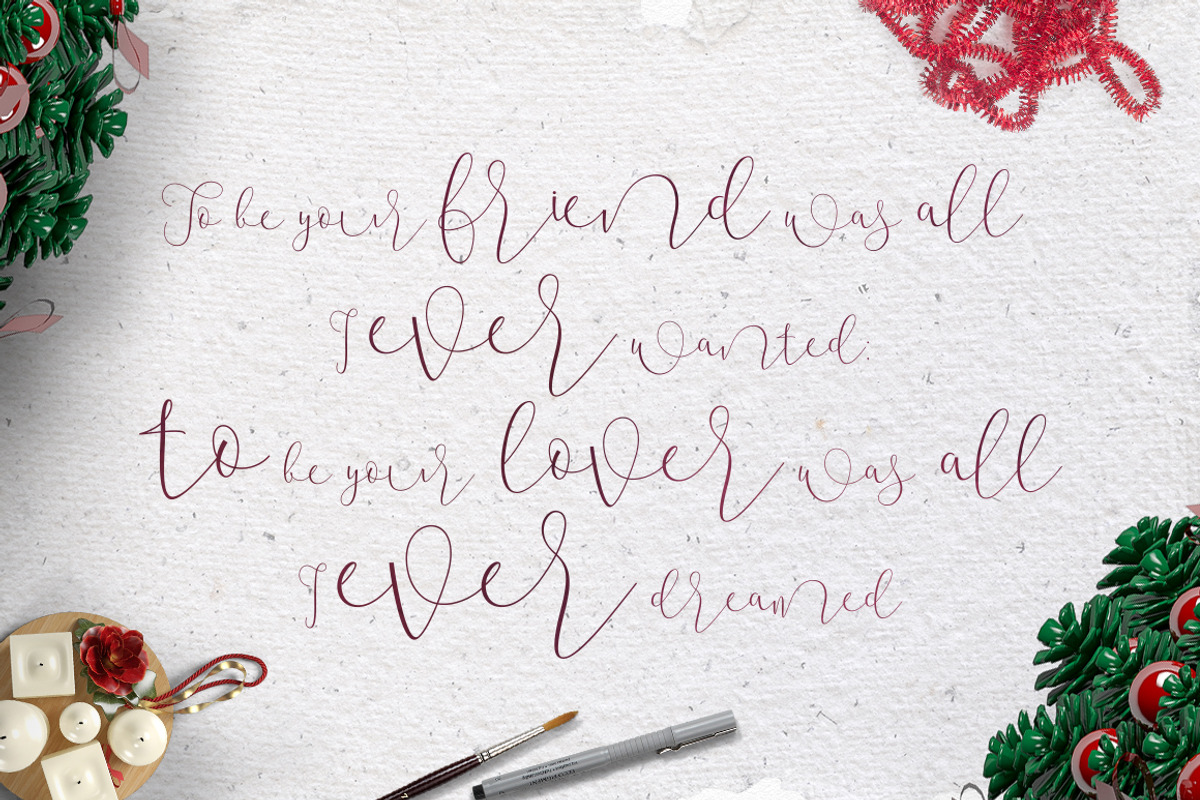 To be your friend was all
I ever wanted;
to be your lover was all
I ever dreamed